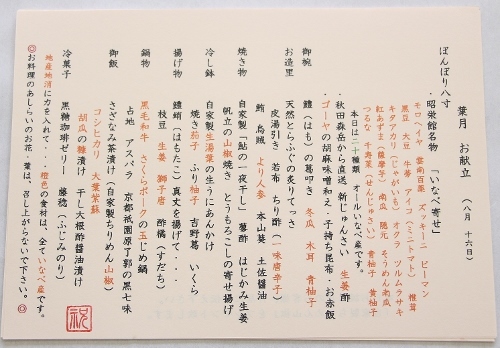 葉月　お献立　（八月　十六日）
ぼんぼり八寸
・昭栄館名物　「いなべ寄せ」
モロヘイヤ　雲南百薬　ズッキーニ　ピーマン
黒豆　大豆　牛蒡　アイコ（ミニトマト）　椎茸
キタアカリ（じゃがいも）　オクラ　ツルムラサキ
紅あずま（薩摩芋）　南瓜　隠元　そうめん南瓜
つるな　千寿葉（せんじゅさい）　青柚子　黄柚子
本日は二十種類　オールいなべ産です。
・秋田森岳から直送　新じゅんさい　生姜酢
・ゴーヤの胡麻味噌和え・子持ち昆布・お赤飯
御椀　鱧（はも）の葛叩き　冬瓜　木耳　青柚子
お造里　天然とらふぐの炙りてっさ
皮湯引き　若布　ちり酢（一味唐辛子）
鮪　烏賊　より人参　本山葵　土佐醤油
焼き物　自家製「鮎の一夜干し」　蓼酢　はじかみ生姜
帆立の山椒焼き　とうもろこしの寄せ揚げ
冷し鉢　自家製生湯葉の生うにあんかけ
焼き茄子　ふり柚子　吉野葛　いくら
揚げ物　鱧蛸（はもたこ）真丈を揚げて・・・
枝豆　生姜　獅子唐　酢橘（すだち）
鍋物　黒毛和牛　さくらポークの玉じめ鍋
占地　アスパラ　京都祇園原了郭の黒七味
御飯　さざなみ茶漬け（自家製ちりめん山椒）
コシヒカリ　大葉紫蘇
胡瓜の糠漬け　干し大根酢醤油漬け
冷菓子　黒糖珈琲ゼリー　藤稔（ふじみのり）
地産地消に力を入れて・・・橙色の食材は、全ていなべ産です。
◎お料理のあしらいのお花、葉は、召し上がらないで下さい。◎
祝